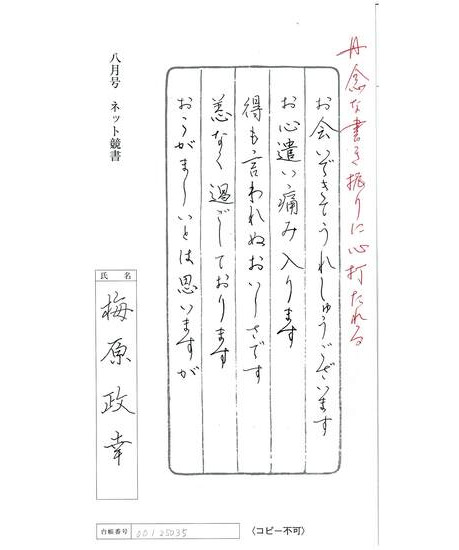 丹念な書き振りに心打たれる
お会いできてうれしゅうございます
お心遣い痛み入ります
得も言われぬおいしさです
恙なく過ごしております
おこがましいとは思いますが
八月号 ネット競書
氏名
梅原政幸
台帳番号 00125035
〈コピー不可〉